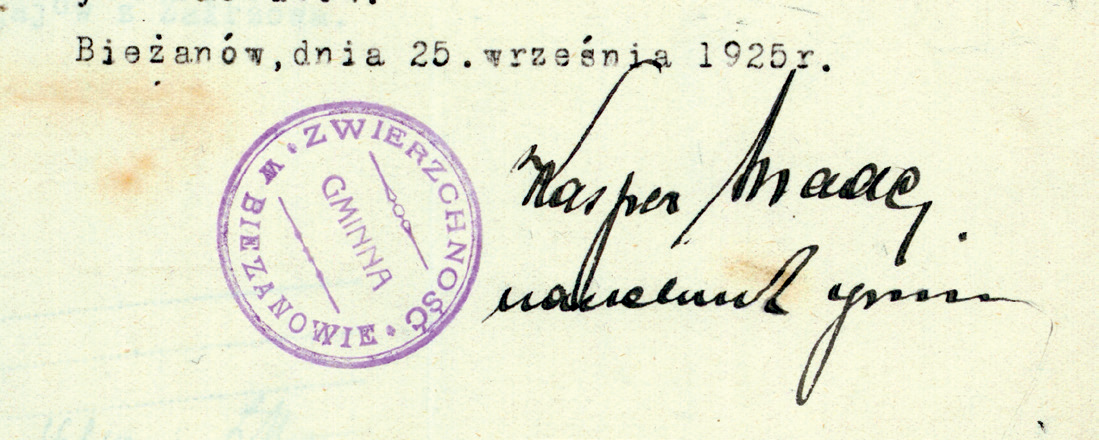 Bieżanów,dnia 25.września 1925r.
ZWIERZCHNOŚĆ
GMINNA
W BIEZANOWIE
Kasper
naczelnik gminy